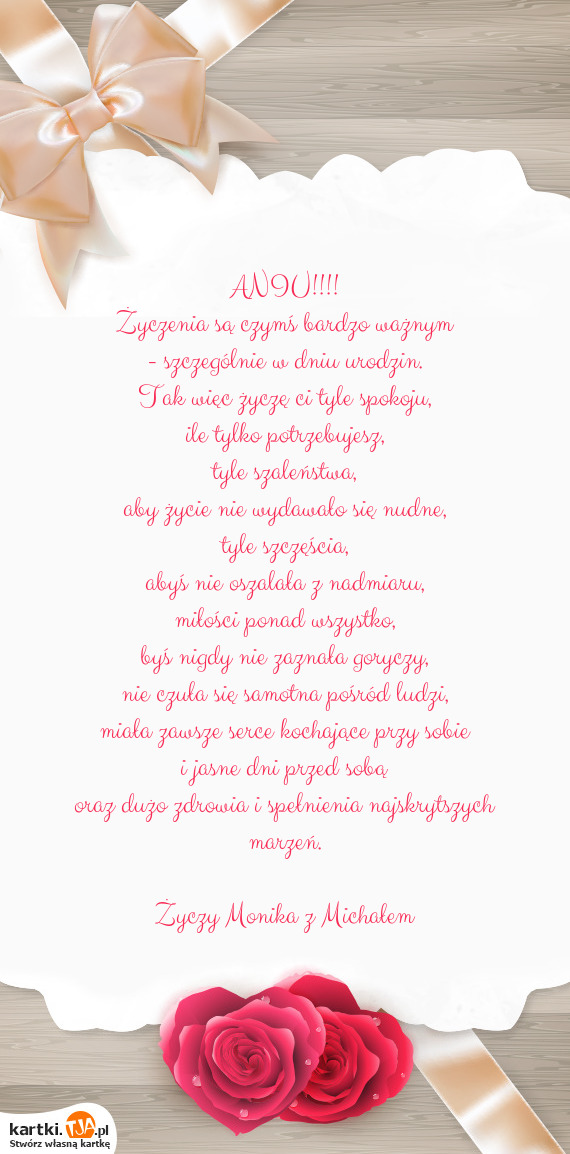 ANIU!!!!
Życzenia są czymś bardzo ważnym
- szczególnie w dniu urodzin.
Tak więc życzę ci tyle spokoju,
ile tylko potrzebujesz,
tyle szaleństwa,
aby życie nie wydawało się nudne,
tyle szczęścia,
abyś nie oszalała z nadmiaru,
miłości ponad wszystko,
byś nigdy nie zaznała goryczy,
nie czuła się samotna pośród ludzi,
miała zawsze serce kochające przy sobie
i jasne dni przed sobą
oraz dużo zdrowia i spełnienia najskrytszych
marzeń.
Życzy Monika z Michałem
kartki.TJA.pl
Stwórz własną kartkę